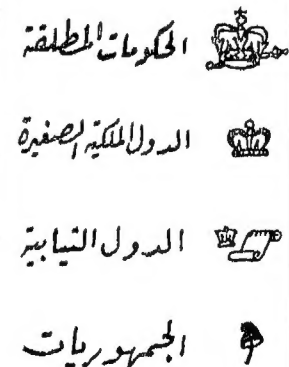 الحكومات المطلقة
الدول الملكية الصغيرة
الدول النيابية
الجمهوريات